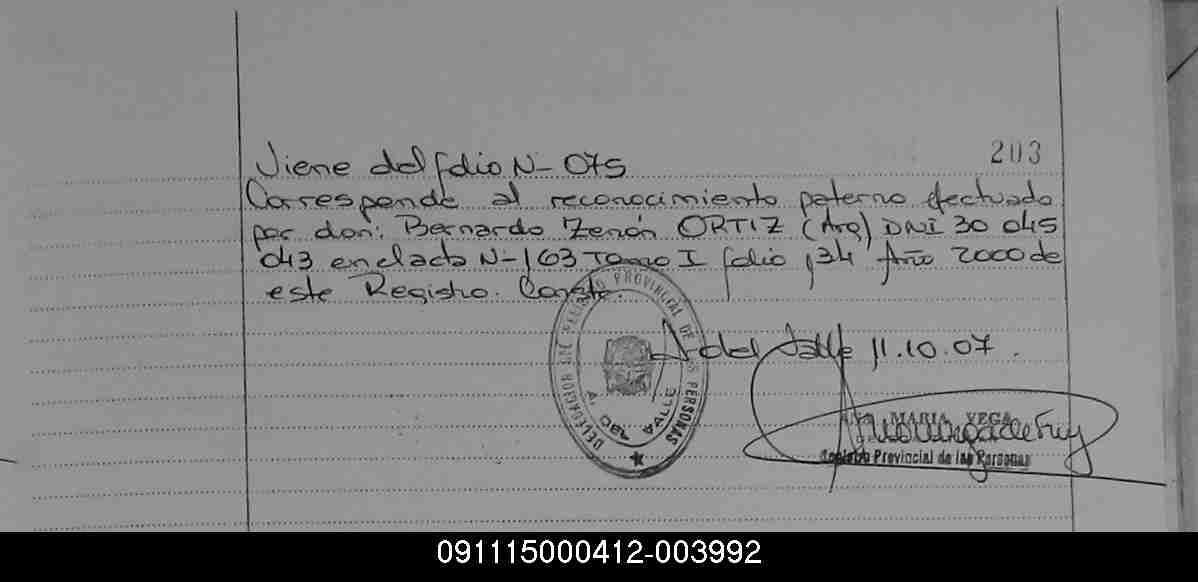 203
Viene del folio N- 075
Corresponde al reconocimiento paterno efectuado
por don: Bernardo Zenón ORTIZ (Arg) DNI 30 045
043 en el acta N- 163 Tomo I folio 134 Año 2000 de
este Registro. Conste.
A. del Valle 11.10.07.
DELEGACION REGISTRO PROVINCIAL DE LAS PERSONAS
A. DEL VALLE
ANA MARIA VEGA
Registro Provincial de las Personas
091115000412-003992